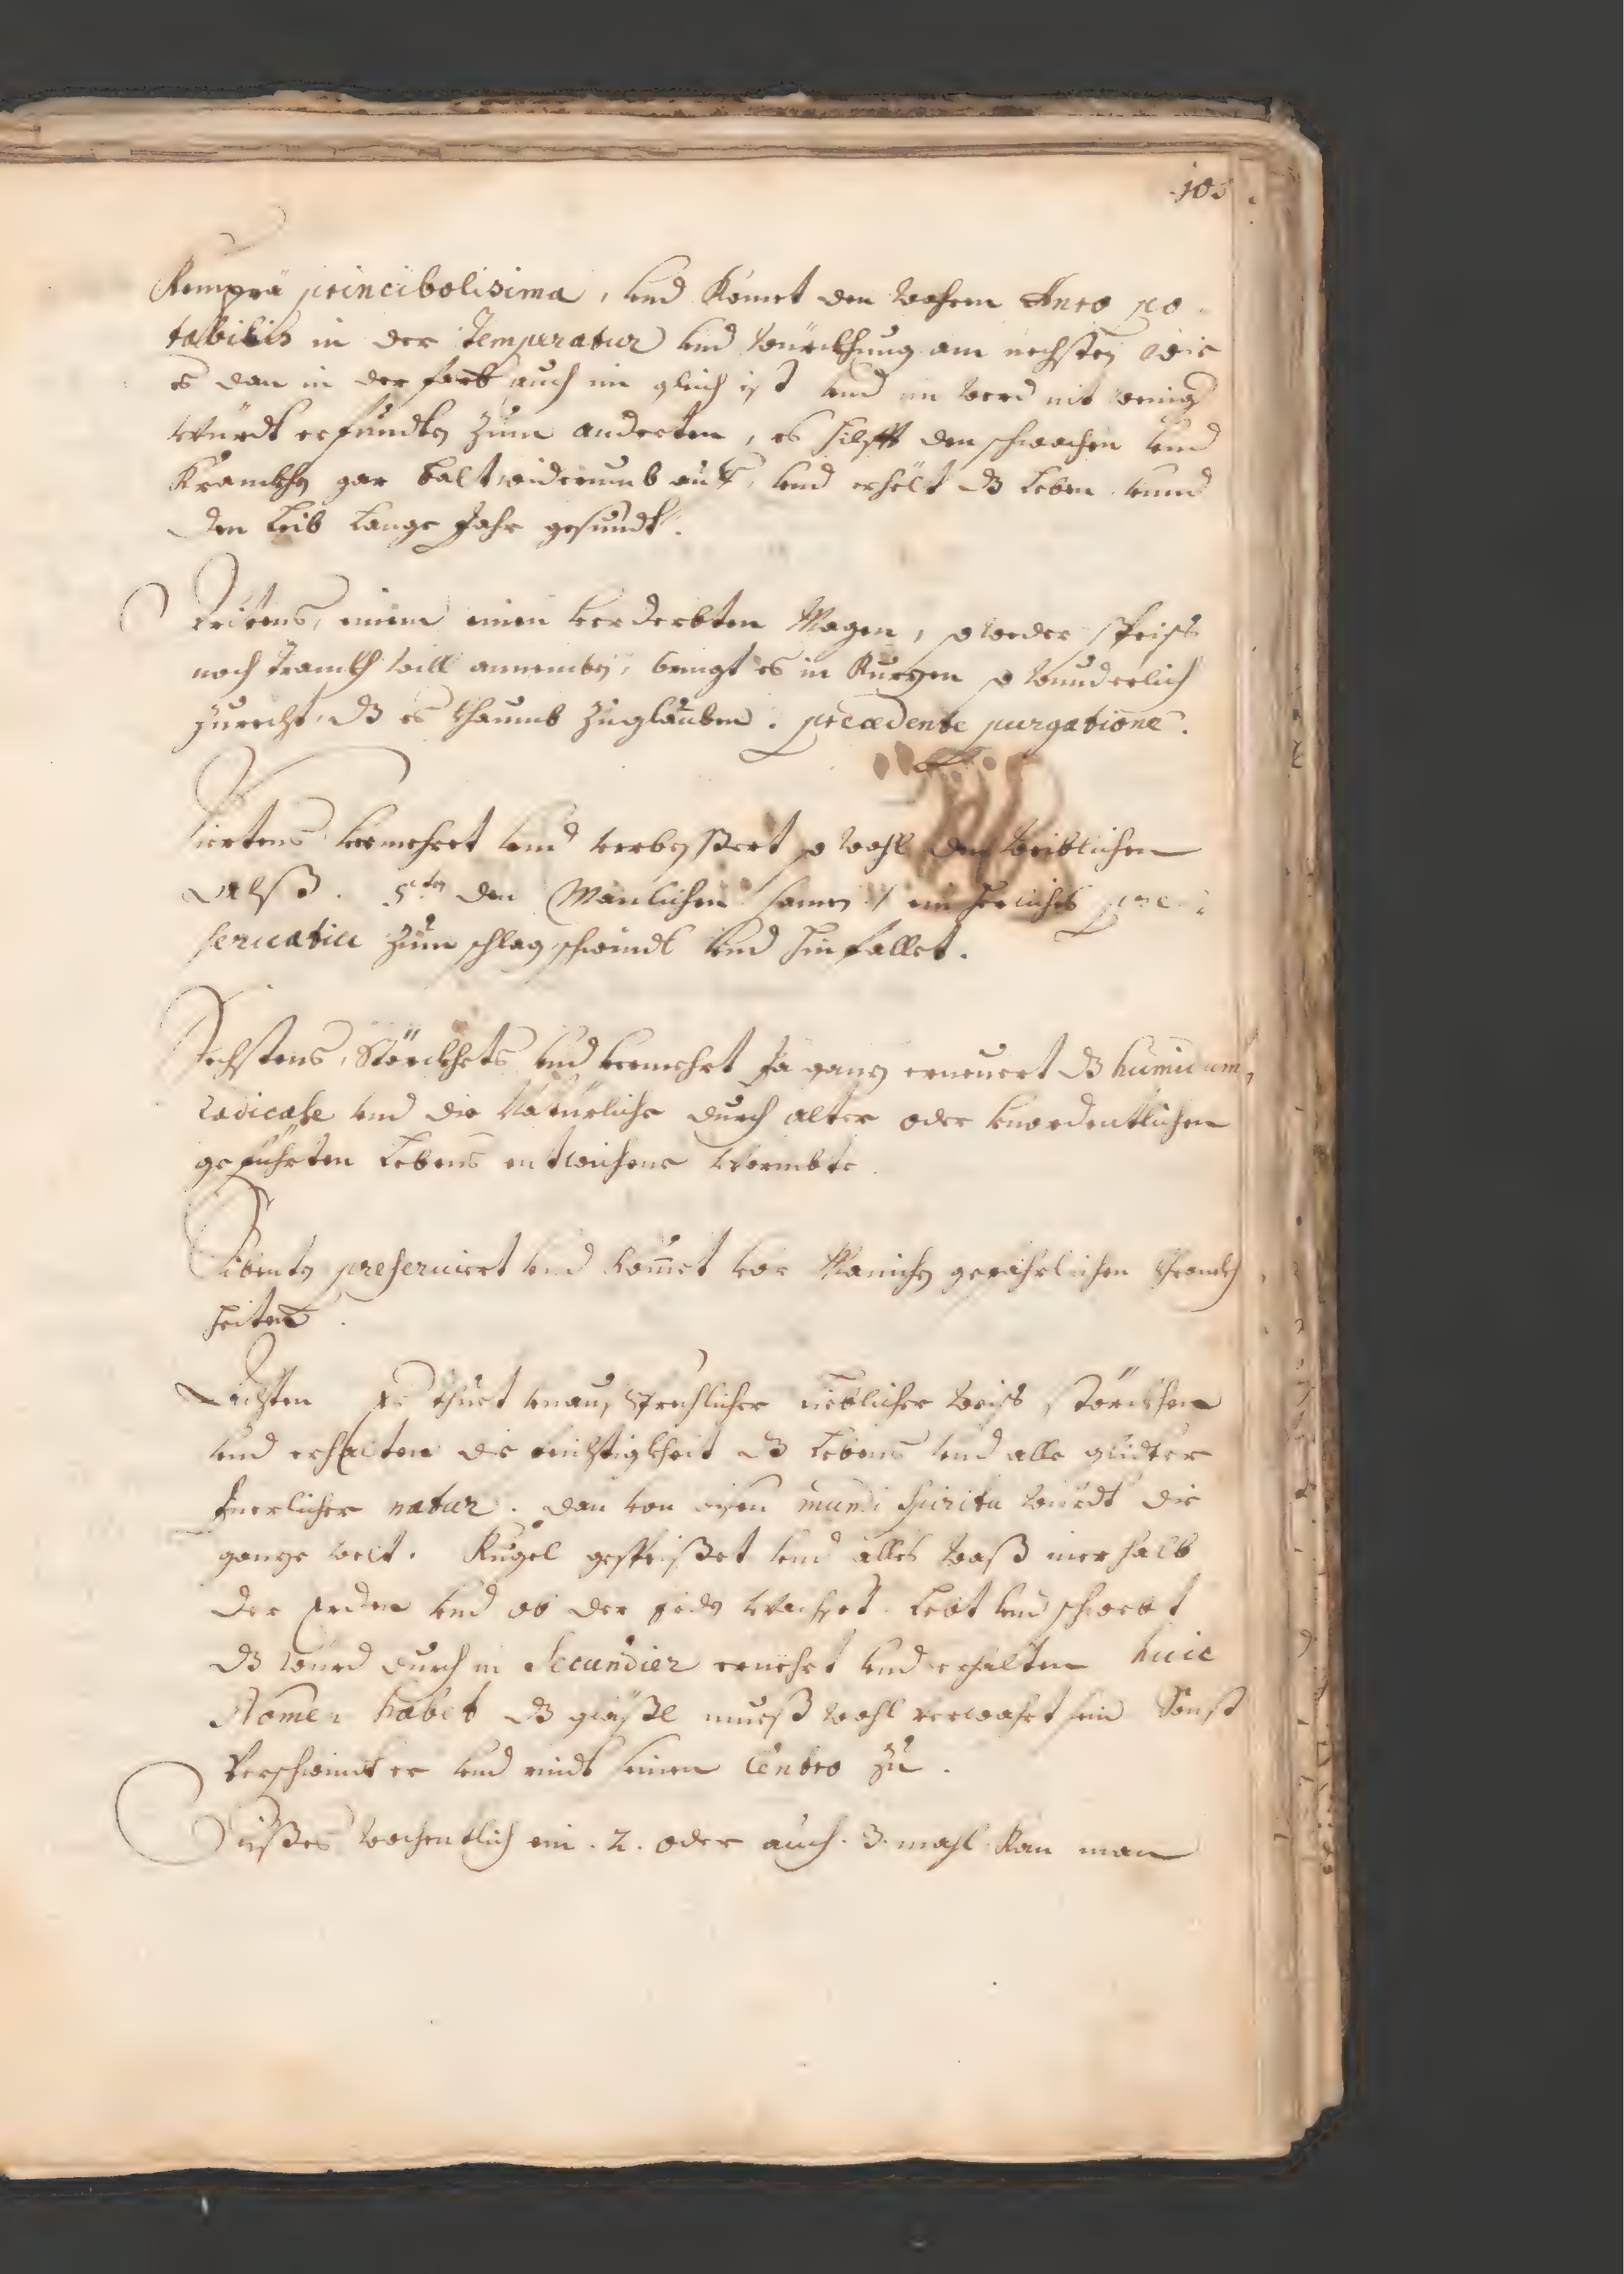 103
Rempra princibolisima, und Komet den wahren Auro po
tabilis in der Temperatur und würckhung am nechsten wie
es dan in der farb auch im gleich ist und im werd nit wenig
würdt erfundten zum anderten, es hilfft den schwachen und
Kranckhen gar balt widerumb auf, und erhelt dz Leben unnd
den Leib Lange Jahr gesundt.
Dritens, einem einen verderbten Magen, so weder speiß
noch Tranckh will annemben, bringt es in Kurzen so wunderlich
zurecht, dz es khaumb zuglauben. precedente purgatione.
Viertens vermehret und verbessert so wohl den weiblichen
Alß. 5ten den Mänlichen samen / ein herliches pre-
servativ zum schlag schwindl und hinfallet.
Sechstens, Störckhets und vermehrt Ja ganz erneuert dz humidum
radicale und die Natürliche durch alter oder unordentlichen
geführten Lebens entwichene wermbte.
Sibenten preserviert und komet vor Manichen gefährlichen khranckh
heiten.
Achten Er thuet unaussprechlicher lieblicher weiß, störckhen
und erhalten die feichtigkheit dz Lebens und alle glidter
Inerlicher natur. dan von disen mundi spiritu würdt die
ganze welt. Kugel gespeißet und alles waß inerhalb
der Erden und ob der Erden wachset. Lebt und schwebt
dz würd durch in Secundier ernehrt und erhalten huic
Nomen habet dz gläßl mueß wohl verwahrt sein Sonst
verschwindt er und eindt seinen Centro zu.
Dißes wochentlich ein. 2. oder auch. 3. mahl Kan man